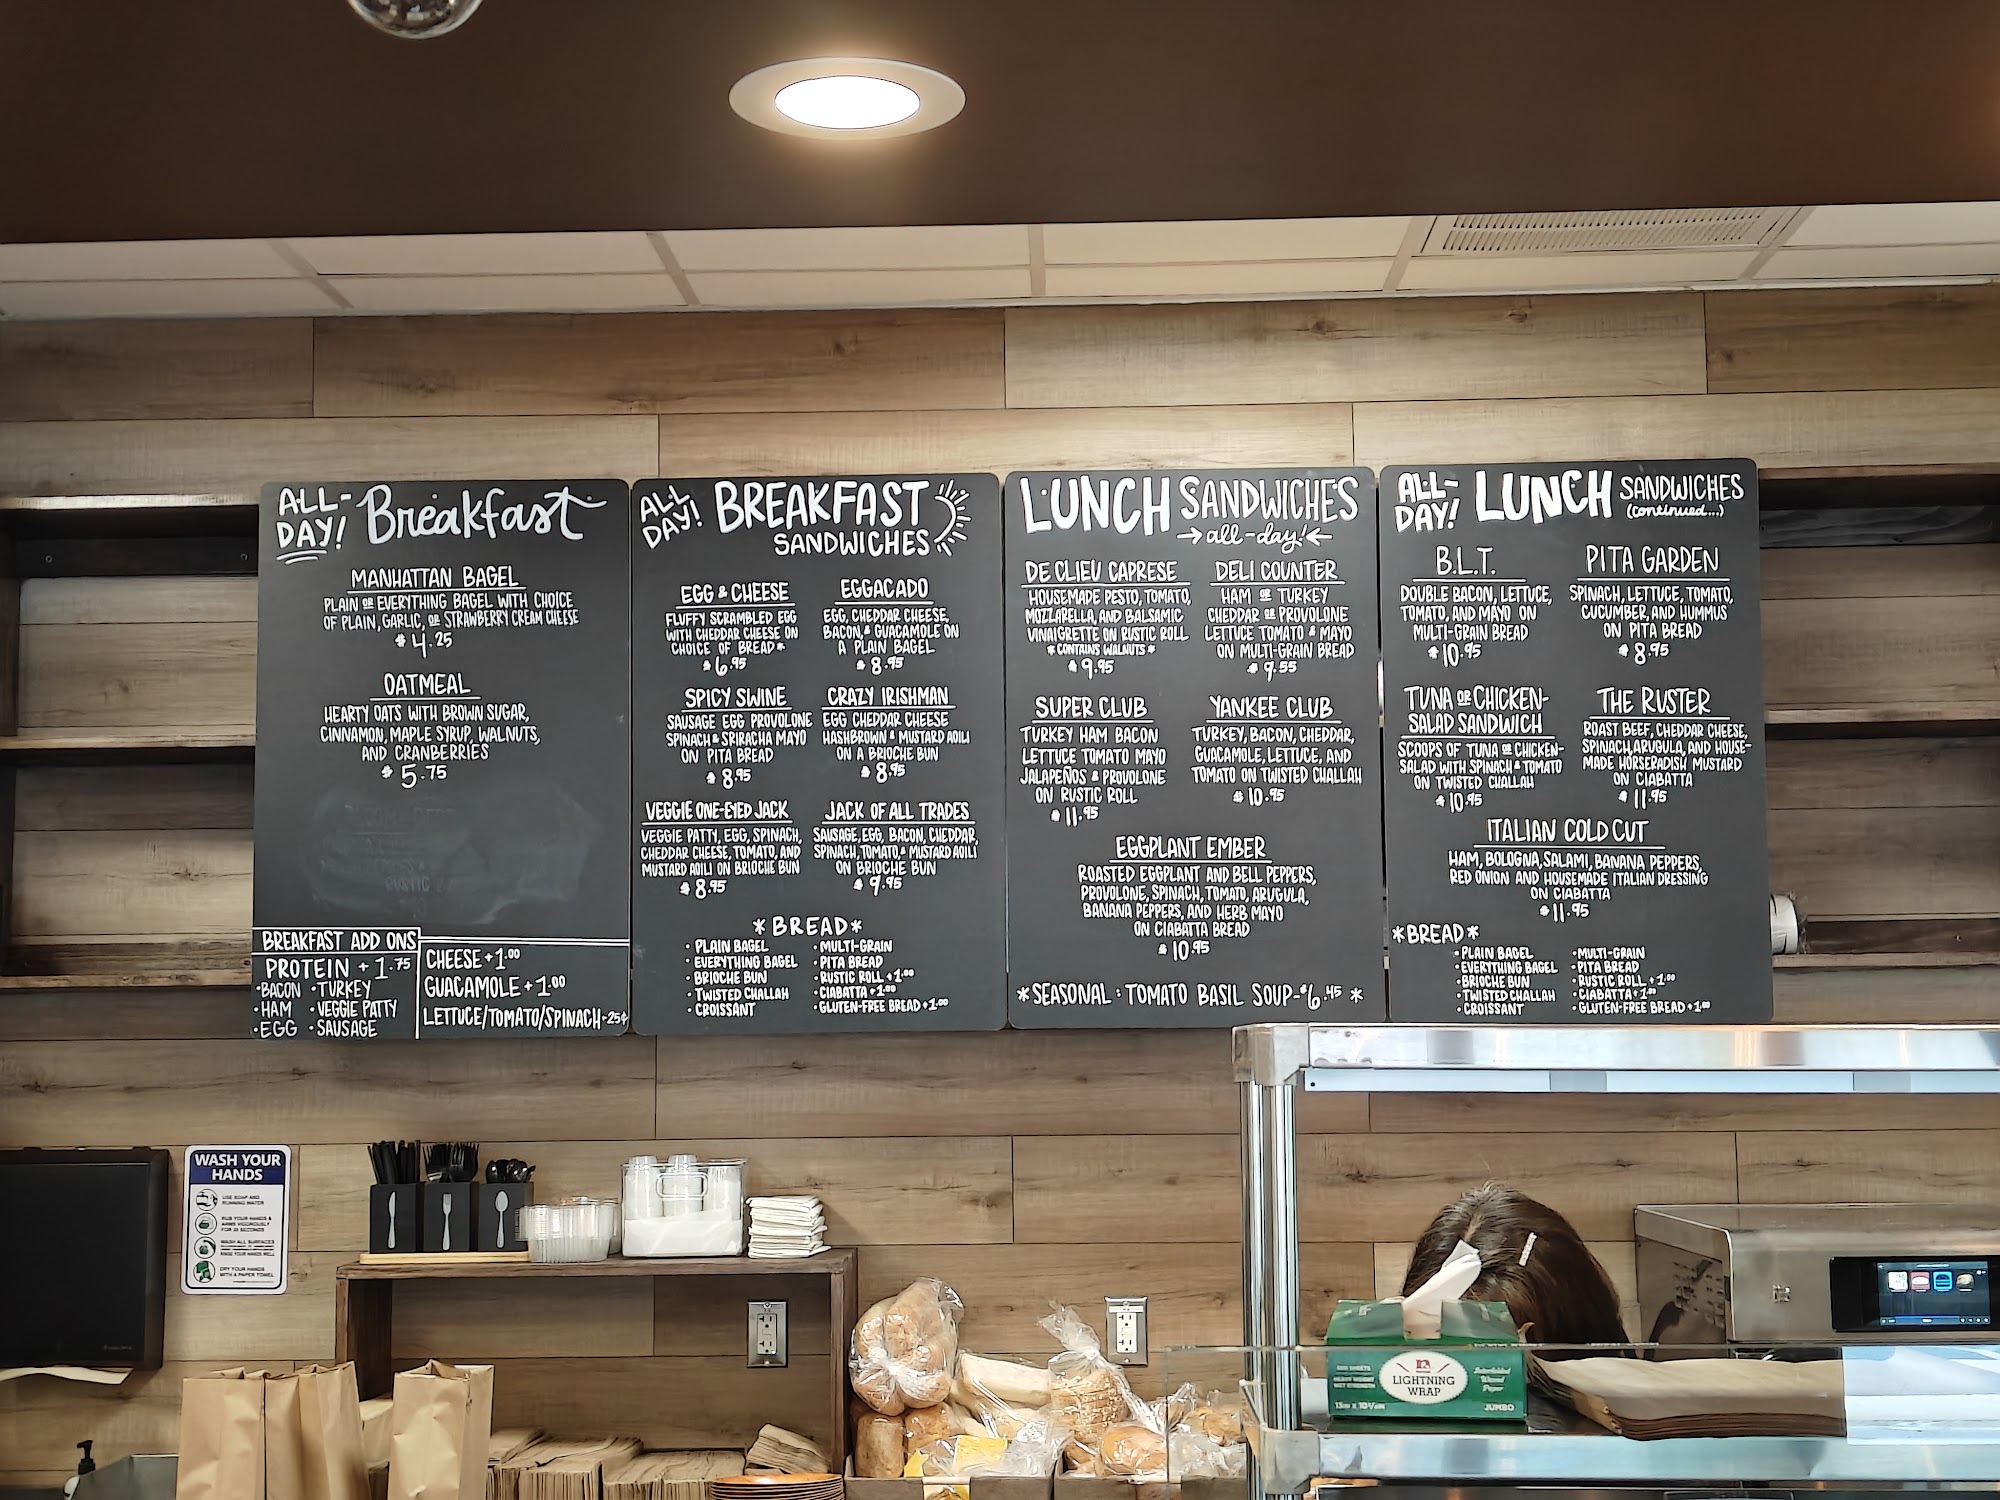 ALL-DAY! Breakfast
MANHATTAN BAGEL
PLAIN OR EVERYTHING BAGEL WITH CHOICE
OF PLAIN, GARLIC, OR STRAWBERRY CREAM CHEESE
$4.25
OATMEAL
HEARTY OATS WITH BROWN SUGAR,
CINNAMON, MAPLE SYRUP, WALNUTS,
AND CRANBERRIES
$5.75
BREAKFAST ADD ONS
PROTEIN +1.75
•BACON •TURKEY
•HAM •VEGGIE PATTY
•EGG •SAUSAGE
CHEESE +1.00
GUACAMOLE +1.00
LETTUCE/TOMATO/SPINACH +25¢
ALL DAY! BREAKFAST
SANDWICHES
EGG & CHEESE
FLUFFY SCRAMBLED EGG
WITH CHEDDAR CHEESE ON
CHOICE OF BREAD*
$6.95
EGGACADO
EGG, CHEDDAR CHEESE,
BACON, & GUACAMOLE ON
A PLAIN BAGEL
$8.95
SPICY SWINE
SAUSAGE EGG PROVOLONE
SPINACH & SRIRACHA MAYO
ON PITA BREAD
$8.95
CRAZY IRISHMAN
EGG CHEDDAR CHEESE
HASHBROWN & MUSTARD AOILI
ON A BRIOCHE BUN
$8.95
VEGGIE ONE-EYED JACK
VEGGIE PATTY, EGG, SPINACH,
CHEDDAR CHEESE, TOMATO, AND
MUSTARD AOILI ON BRIOCHE BUN
$8.95
JACK OF ALL TRADES
SAUSAGE, EGG, BACON, CHEDDAR,
SPINACH, TOMATO, & MUSTARD AOILI
ON BRIOCHE BUN
$9.95
*BREAD*
• PLAIN BAGEL
• EVERYTHING BAGEL
• BRIOCHE BUN
• TWISTED CHALLAH
• CROISSANT
• MULTI-GRAIN
• PITA BREAD
• RUSTIC ROLL +1.00
• CIABATTA +1.00
• GLUTEN-FREE BREAD +1.00
LUNCH SANDWICHES
→ all-day! ←
DE CLIEU CAPRESE
HOUSEMADE PESTO, TOMATO,
MOZZARELLA, AND BALSAMIC
VINAIGRETTE ON RUSTIC ROLL
*CONTAINS WALNUTS*
$9.95
DELI COUNTER
HAM OR TURKEY
CHEDDAR OR PROVOLONE
LETTUCE TOMATO & MAYO
ON MULTI-GRAIN BREAD
$9.55
SUPER CLUB
TURKEY HAM BACON
LETTUCE TOMATO MAYO
JALAPEÑOS & PROVOLONE
ON RUSTIC ROLL
$11.95
YANKEE CLUB
TURKEY, BACON, CHEDDAR,
GUACAMOLE, LETTUCE, AND
TOMATO ON TWISTED CHALLAH
$10.95
EGGPLANT EMBER
ROASTED EGGPLANT AND BELL PEPPERS,
PROVOLONE, SPINACH, TOMATO, ARUGULA,
BANANA PEPPERS, AND HERB MAYO
ON CIABATTA BREAD
$10.95
*SEASONAL: TOMATO BASIL SOUP-$6.45 *
ALL-DAY! LUNCH SANDWICHES
(continued...)
B.L.T.
DOUBLE BACON, LETTUCE,
TOMATO, AND MAYO ON
MULTI-GRAIN BREAD
$10.95
PITA GARDEN
SPINACH, LETTUCE, TOMATO,
CUCUMBER, AND HUMMUS
ON PITA BREAD
$8.95
TUNA OR CHICKEN-
SALAD SANDWICH
SCOOPS OF TUNA OR CHICKEN-
SALAD WITH SPINACH & TOMATO
ON TWISTED CHALLAH
$10.95
THE RUSTER
ROAST BEEF, CHEDDAR CHEESE,
SPINACH, ARUGULA, AND HOUSE-
MADE HORSERADISH MUSTARD
ON CIABATTA
$11.95
ITALIAN COLD CUT
HAM, BOLOGNA, SALAMI, BANANA PEPPERS,
RED ONION AND HOUSEMADE ITALIAN DRESSING
ON CIABATTA
$11.95
*BREAD*
• PLAIN BAGEL
• EVERYTHING BAGEL
• BRIOCHE BUN
• TWISTED CHALLAH
• CROISSANT
• MULTI-GRAIN
• PITA BREAD
• RUSTIC ROLL +1.00
• CIABATTA +1.00
• GLUTEN-FREE BREAD +1.00
WASH YOUR
HANDS
USE SOAP AND
RUNNING WATER
RUB YOUR HANDS &
ARMS VIGOROUSLY
FOR 20 SECONDS
WASH ALL SURFACES
RINSE YOUR HANDS WELL
DRY YOUR HANDS
WITH A PAPER TOWEL
LIGHTNING
WRAP
Interfolded
Waxed
Paper
JUMBO